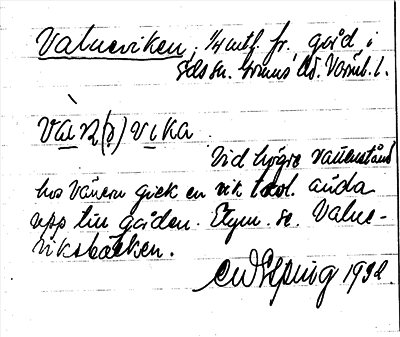 Valneviken, 1/4 mtl. fr. gård, i
Eds sn. Grums hd. Värml. l.
Vàn(?)vika
Vid högre vattenstånd
hos Vänern gick en vik t.o.d. ända
upp till gården. Etym. se Valne-
viksbäcken.
1932